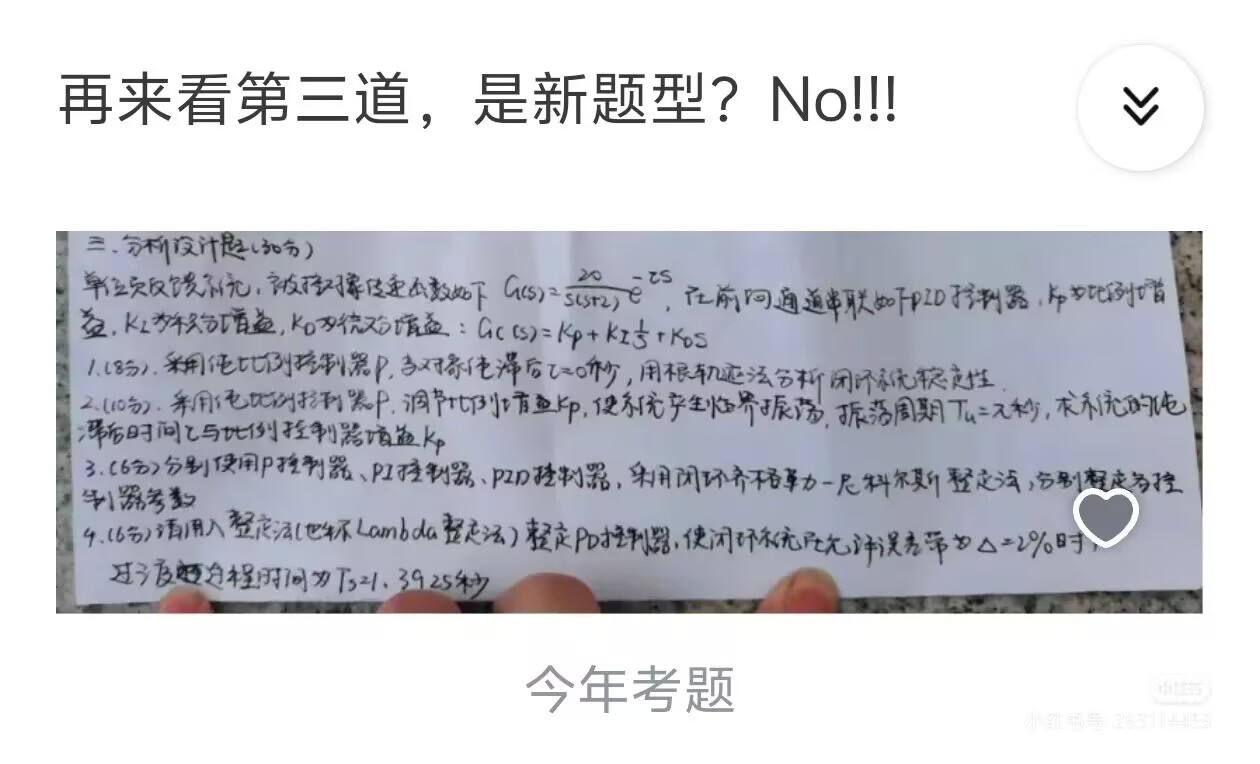 再来看第三道，是新题型？No!!!
三.分析设计题(30分)
单位负反馈系统，被控对象传递函数如下 G(s)=20/s(s+2) e^-τs，在前向通道串联如下PID控制器，Kp为比例增
益，KI为积分增益，KD为微分增益：Gc(s)=Kp+KI 1/s+KDs
1.(8分).采用纯比例控制器P，当对象纯滞后τ=0秒，用根轨迹法分析闭环系统稳定性.
2.(10分).采用纯比例控制器P，调节比例增益Kp，使系统产生临界振荡，振荡周期Tu=π秒，求系统的纯
滞后时间τ与比例控制器增益Kp
3.(6分)分别使用P控制器、PI控制器、PID控制器，采用闭环齐格勒-尼科尔斯整定法，分别整定各控
制器参数
4.(6分)请用λ整定法(也称Lambda整定法)整定PD控制器，使闭环系统在允许误差带为Δ=2%时，
过渡过程时间为Ts=1.3925秒
今年考题
小红书